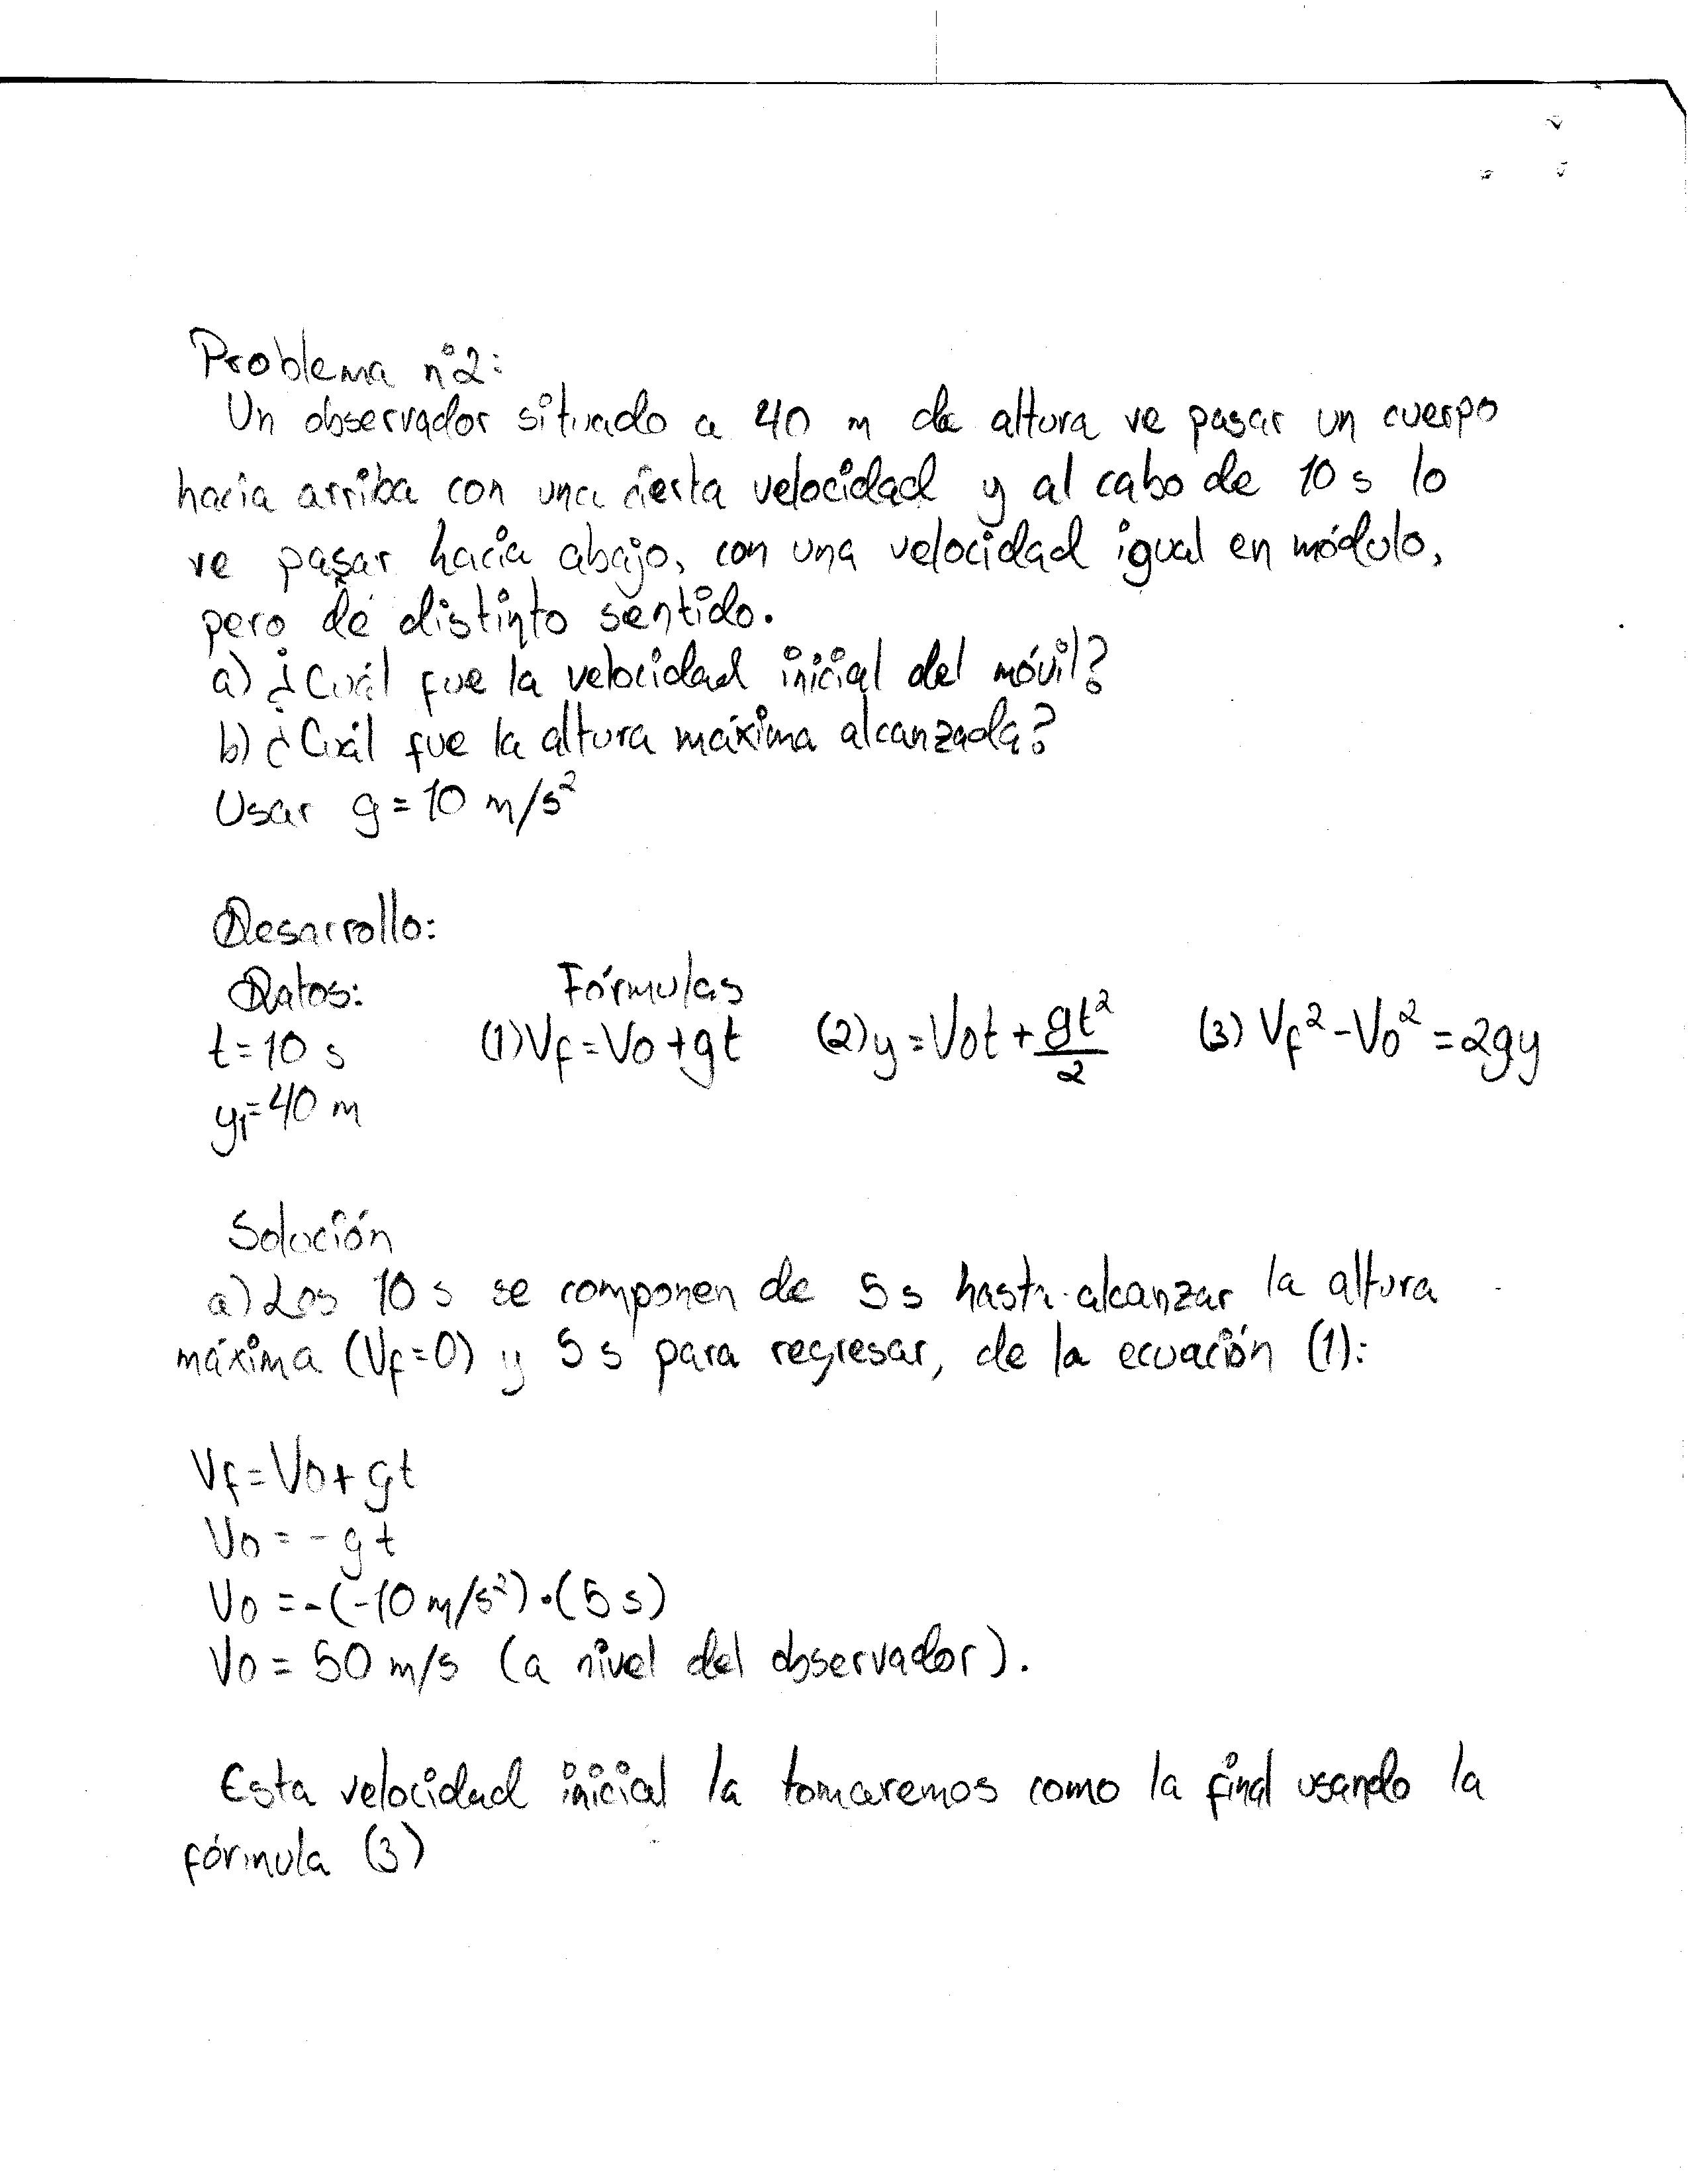 Problema n°2:
Un observador situado a 40 m de altura ve pasar un cuerpo
hacia arriba con una cierta velocidad y al cabo de 10 s lo
ve pasar hacia abajo, con una velocidad igual en módulo,
pero de distinto sentido.
a) ¿Cuál fue la velocidad inicial del móvil?
b) ¿Cuál fue la altura máxima alcanzada?
Usar g = 10 m/s²
Desarrollo:
Datos: Fórmulas
t = 10 s (1) Vf = V0 + gt (2) y = V0t + gt²/2 (3) Vf² - V0² = 2gy
y1 = 40 m
Solución
a) Los 10 s se componen de 5 s hasta alcanzar la altura
máxima (Vf = 0) y 5 s para regresar, de la ecuación (1):
Vf = V0 + gt
V0 = - gt
V0 = -(-10 m/s²)·(5 s)
V0 = 50 m/s (a nivel del observador).
Esta velocidad inicial la tomaremos como la final usando la
fórmula (3)